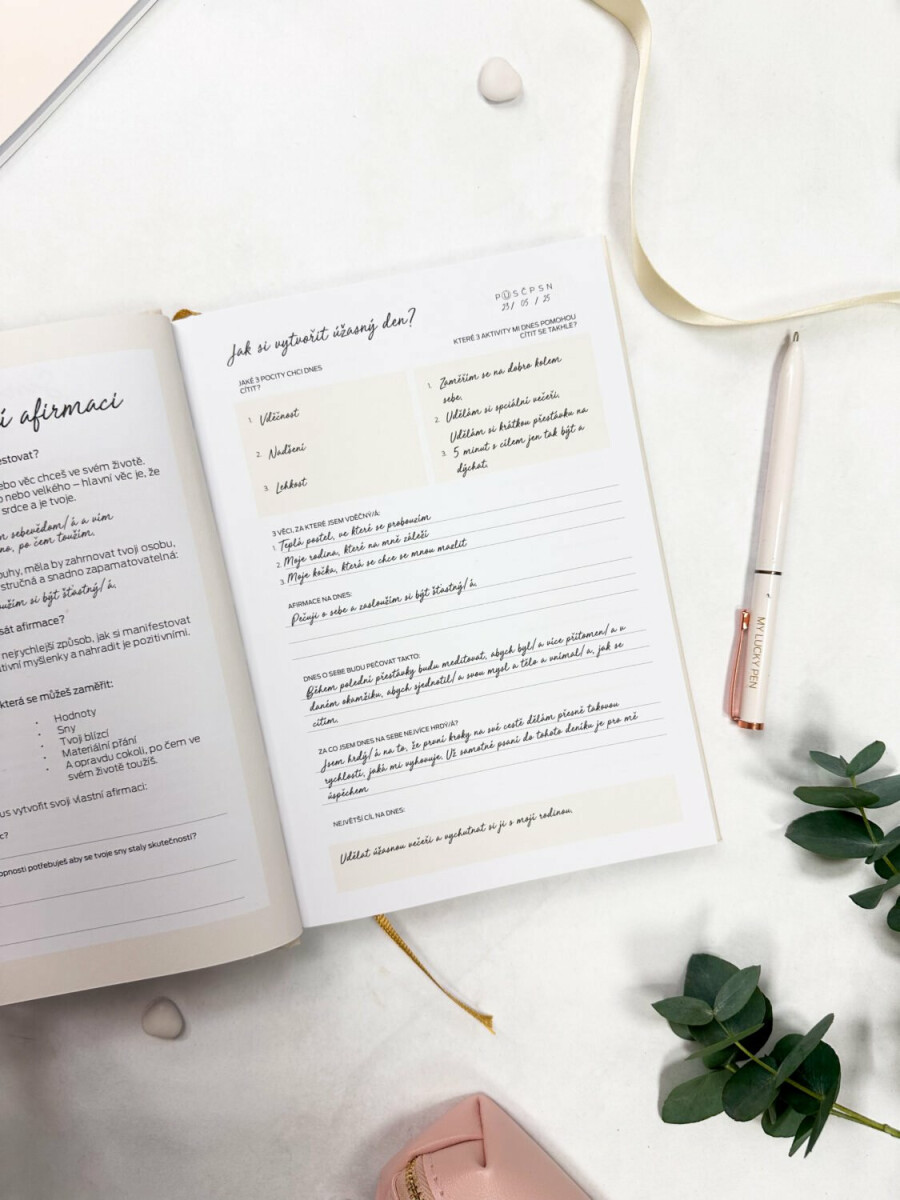 í afirmací
ebo věc chceš ve svém životě.
o nebo velkého – hlavní věc je, že
srdce a je tvoje.
sebevědom/á a vím
po čem toužím.
měla by zahrnovat tvoji osobu,
stručná a snadno zapamatovatelná:
si být šťastný/á.
afirmace?
nejrychlejší způsob, jak si manifestovat
myšlenky a nahradit je pozitivními.
která se můžeš zaměřit:
• Hodnoty
• Sny
• Tvoji blízcí
• Materiální přání
• A opravdu cokoli, po čem ve
svém životě toužíš.
vytvořit svoji vlastní afirmaci:
potřebuješ aby se tvoje sny staly skutečností?
Jak si vytvořit úžasný den?
P Ú S Č P S N
23/ 05 / 25
JAKÉ 3 POCITY CHCI DNES
CÍTIT?
1. Vděčnost
2. Nadšení
3. Lehkost
KTERÉ 3 AKTIVITY MI DNES POMOHOU
CÍTIT SE TAKHLE?
1. Zaměřím se na dobro kolem
sebe.
2. Udělám si spciální večeři.
Udělám si krátkou přestávku na
3. 5 minut s cílem jen tak být a
dýchat.
3 VĚCI, ZA KTERÉ JSEM VDĚČNÝ/Á:
1. Teplá postel, ve které se probouzím
2. Moje rodina, které na mně záleží
3. Moje kočka, která se chce se mnou mazlit
AFIRMACE NA DNES:
Pečuji o sebe a zasloužím si být šťastný/á.
DNES O SEBE BUDU PEČOVAT TAKTO:
Během polední přestávky budu meditovat, abych byl/a více přítomen/a v
daném okamžiku, abych sjednotil/a svou mysl a tělo a vnímal/a, jak se
cítím.
ZA CO JSEM DNES NA SEBE NEJVÍCE HRDÝ/Á?
Jsem hrdý/á na to, že první kroky na své cestě dělám přesně takovou
rychlostí, jaká mi vyhovuje. Už samotné psaní do tohoto deníku je pro mě
úspěchem
NEJVĚTŠÍ CÍL NA DNES:
Udělat úžasnou večeři a vychutnat si ji s mojí rodinou.
MY LUCKY PEN